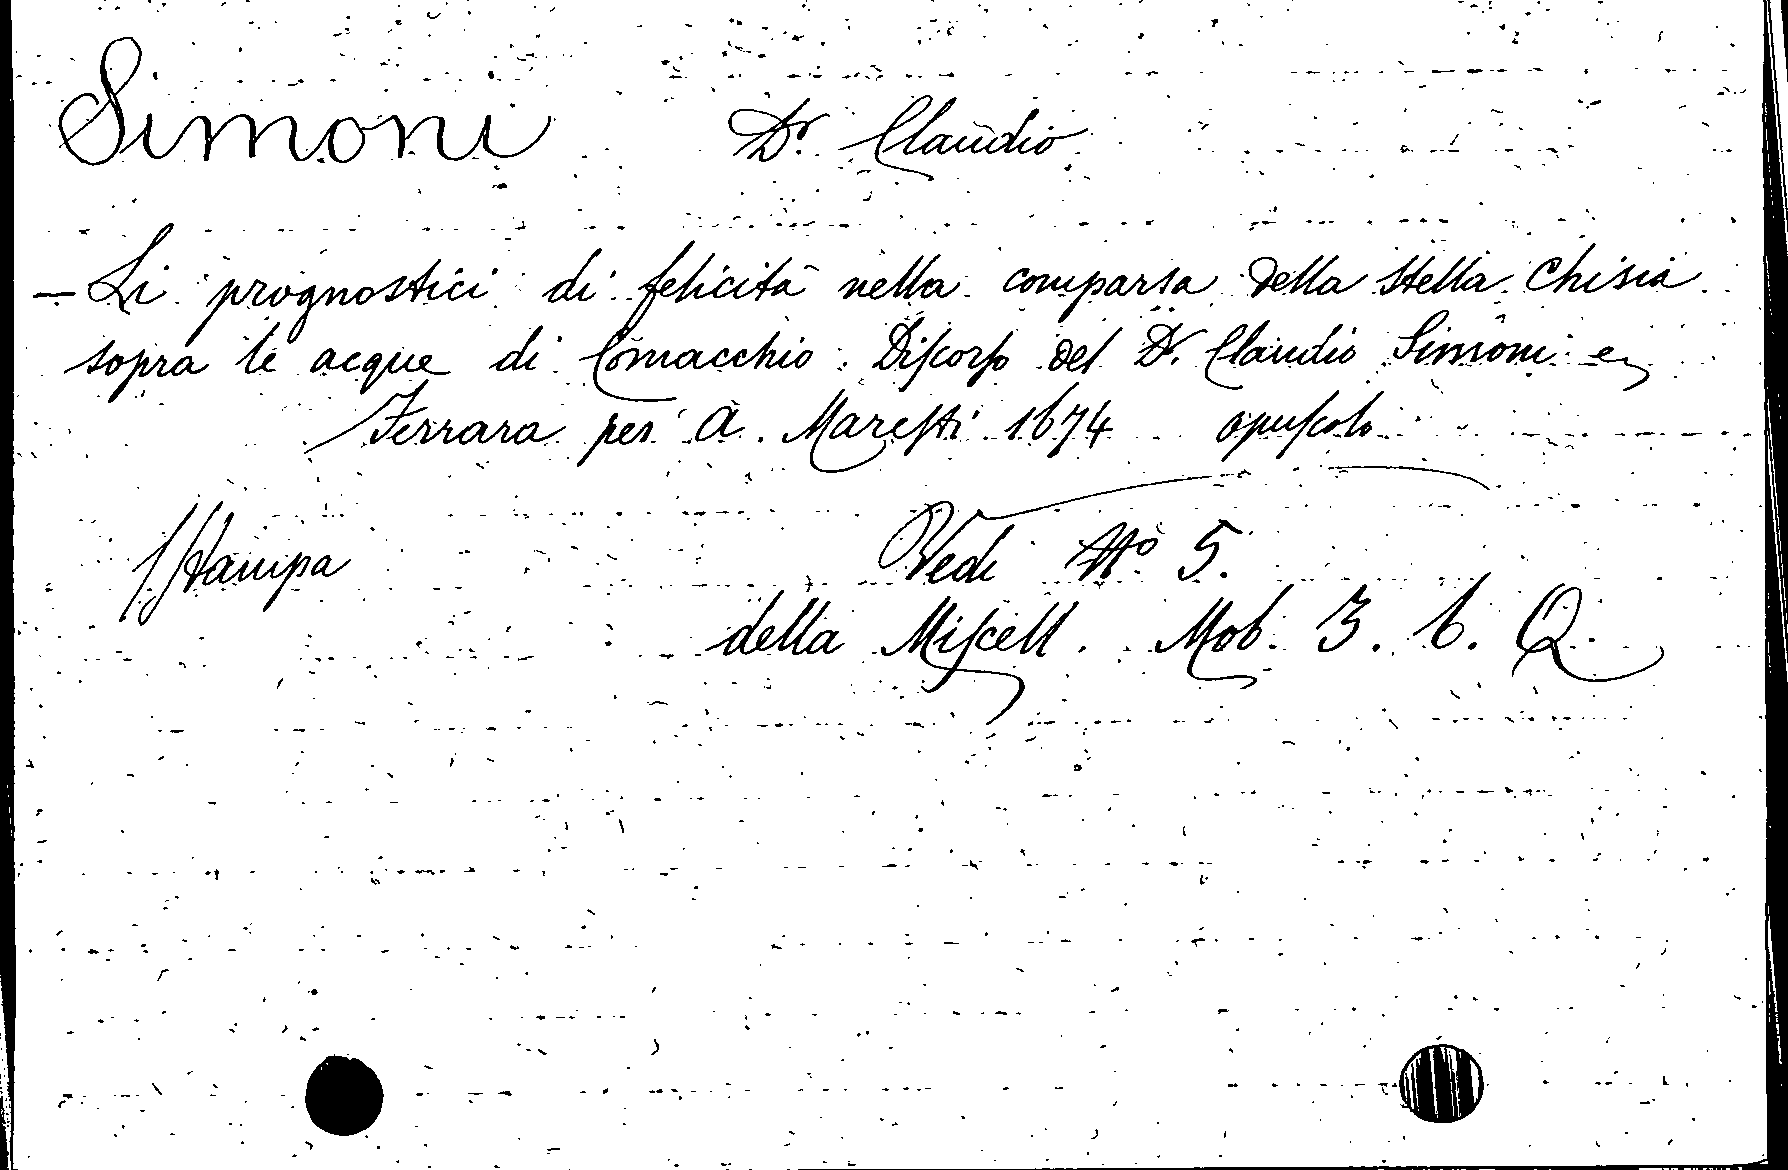 Simoni Dr. Claudio
— Li prognostici di felicità nella comparsa della stella Chisia
sopra le acque di Comacchio. Discorso del Dr. Claudio Simoni
Ferrara per A. Maresti 1674 opuscolo
Stampa Vedi No 5.
della Miscell. Mob. 3. 6. Q.